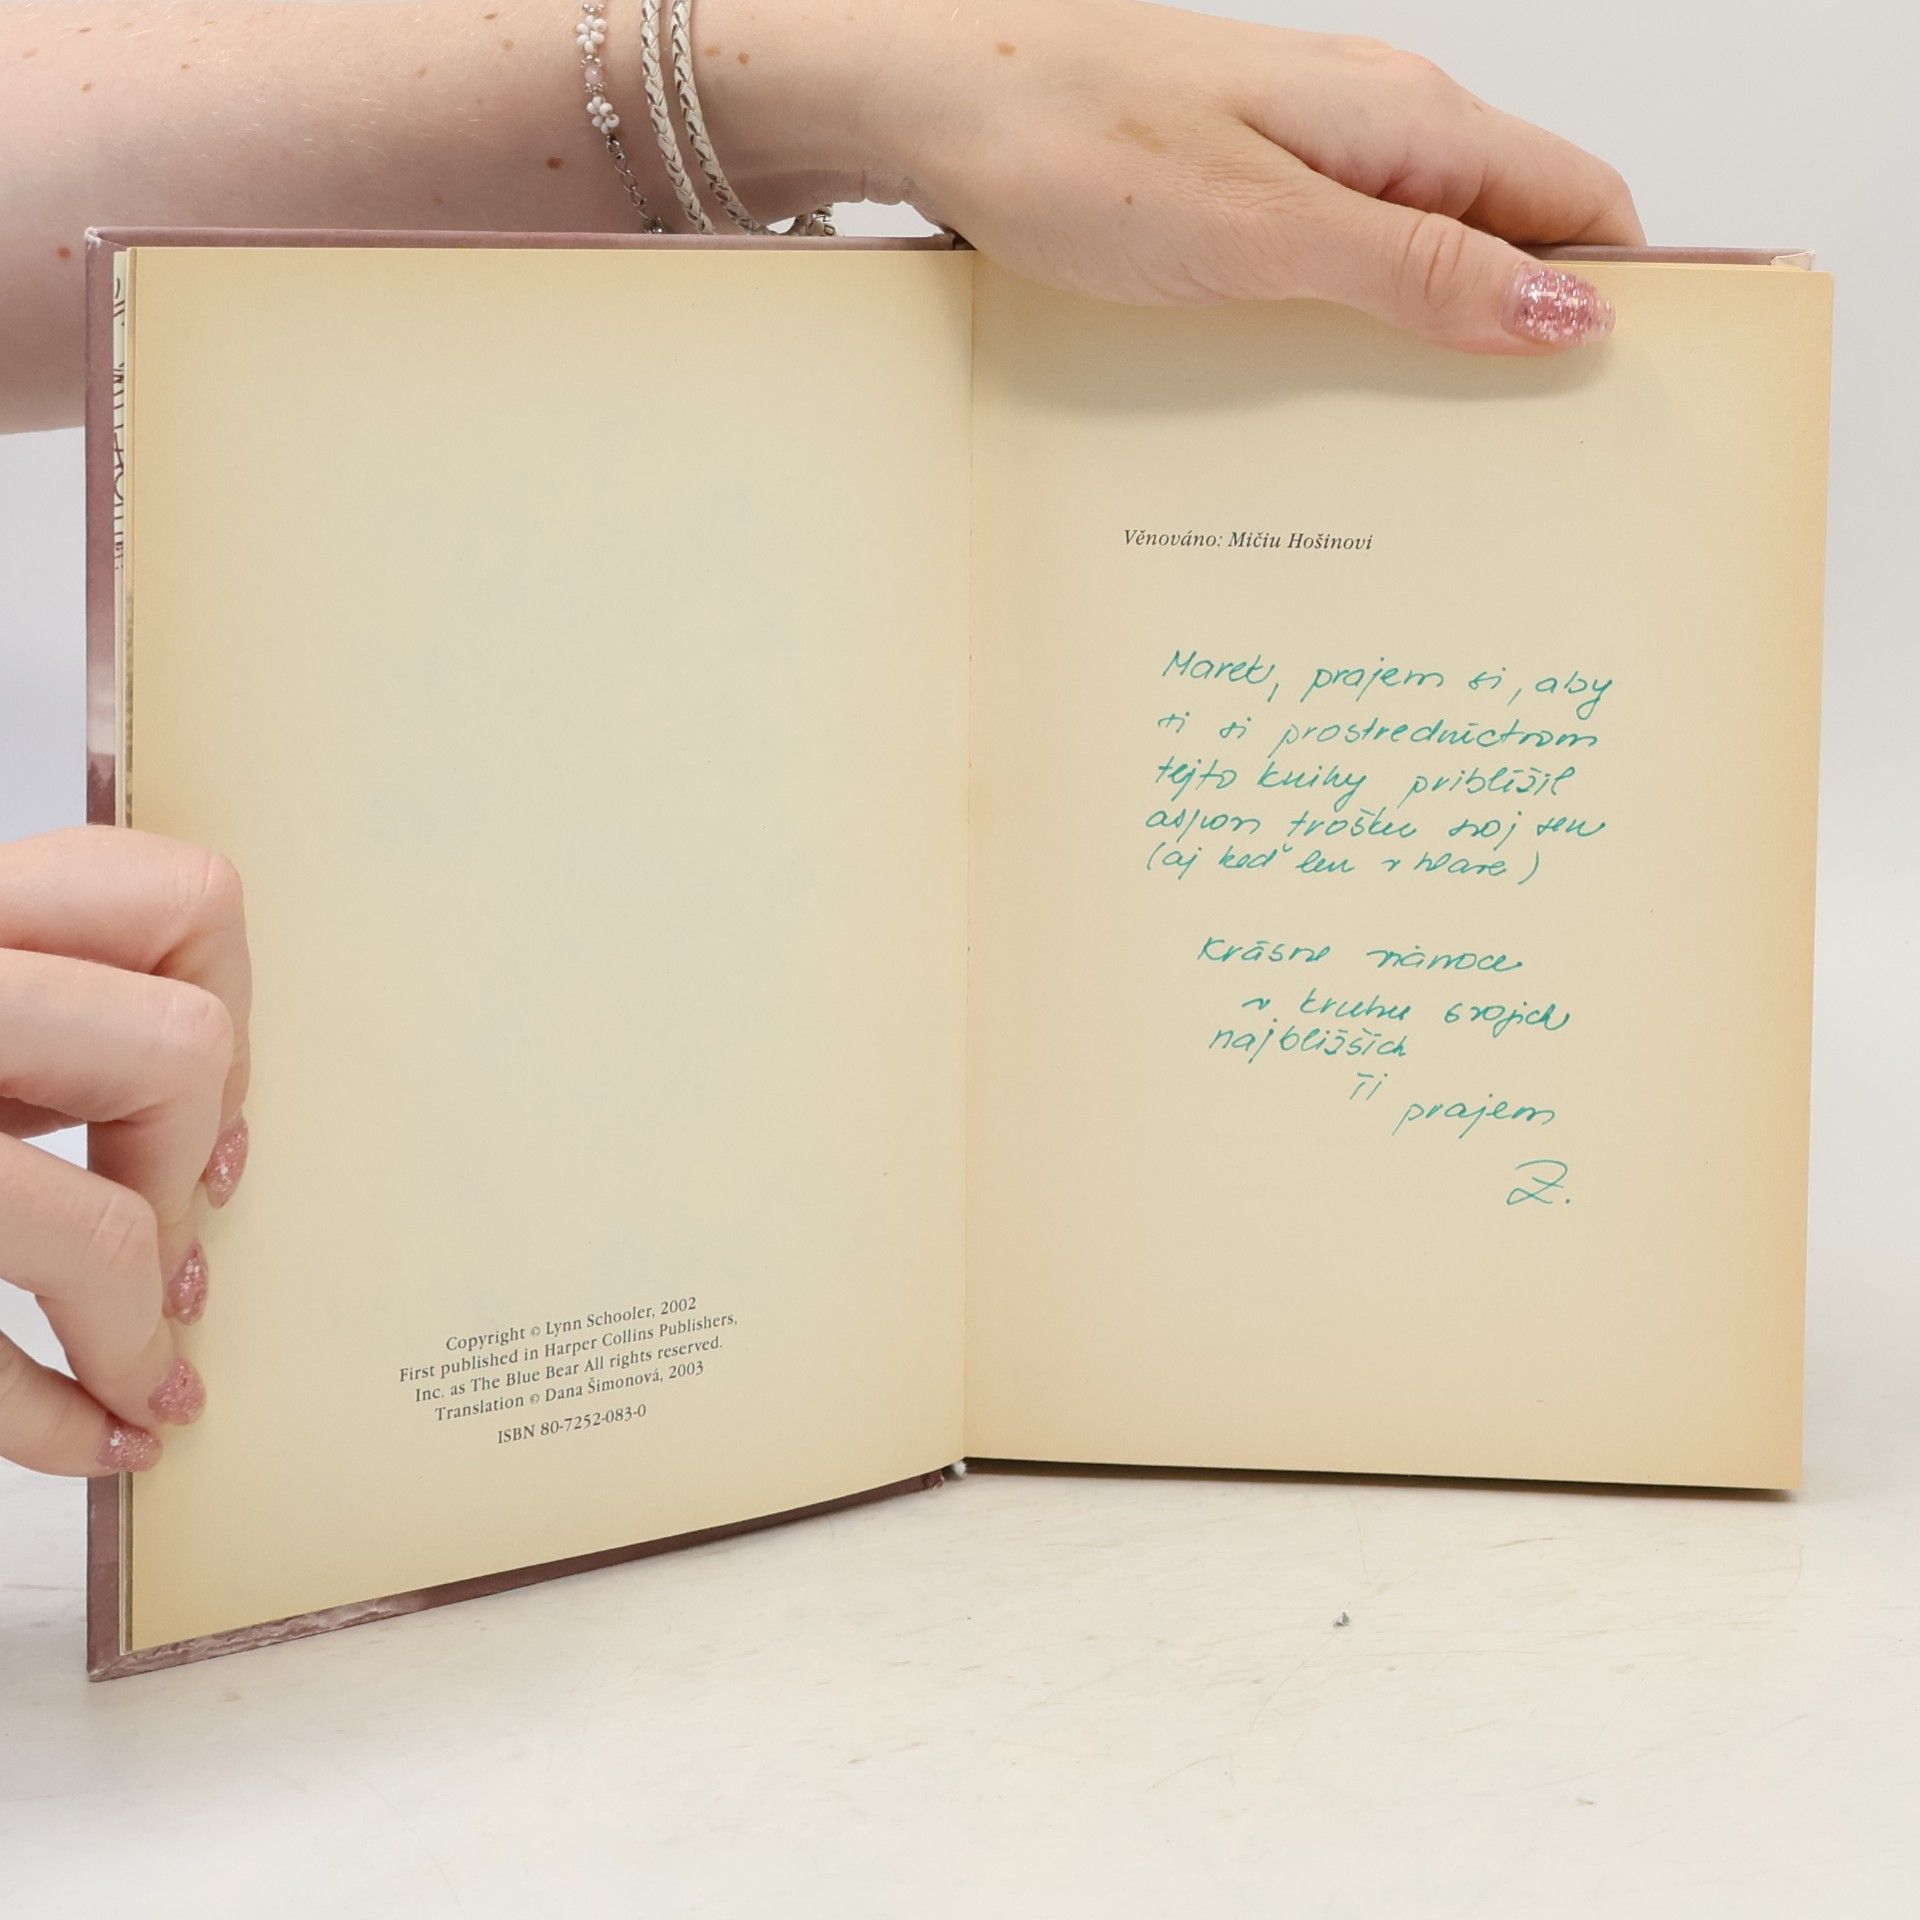 Copyright © Lynn Schooler, 2002
First published in Harper Collins Publishers,
Inc. as The Blue Bear All rights reserved.
Translation © Dana Šimonová, 2003
ISBN 80-7252-083-0
Věnováno: Mičiu Hošinovi
Marek, prajem si, aby
si si prostredníctvom
tejto knihy priblížil
aspon trošku svoj sen
(aj keď len v hlave)
Krásne vianoce
v kruhu svojich
najbližších
Ti
prajem
Z.